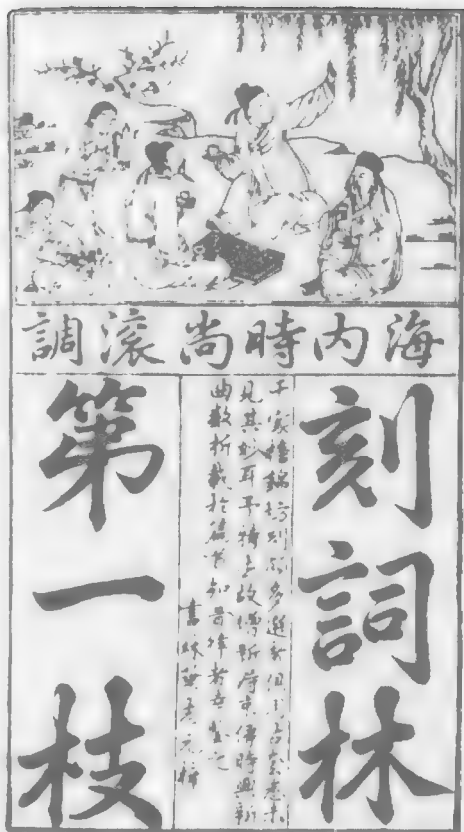 海内時尚滚調
刻詞林
千家摘錦坊刻頗多選者俱用古套悉未
見其妙耳予特去故增新得京傳時興新
曲數折載於篇首知音律者幸鑒之
書林葉志元梓
第一枝